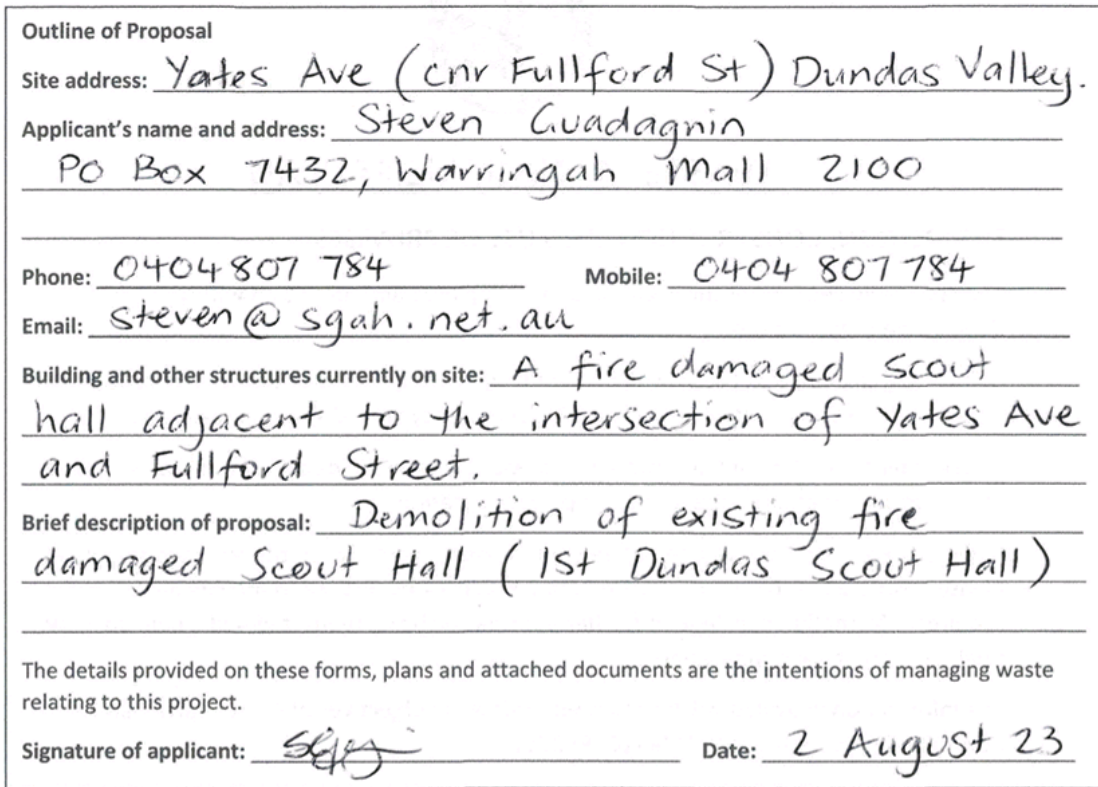 Outline of Proposal
Site address: Yates Ave (cnr Fullford St) Dundas Valley.
Applicant's name and address: Steven Guadagnin
PO Box 7432, Warringah Mall 2100
Phone: 0404 807 784 Mobile: 0404 807 784
Email: steven@sgah.net.au
Building and other structures currently on site: A fire damaged scout
hall adjacent to the intersection of Yates Ave
and Fullford Street.
Brief description of proposal: Demolition of existing fire
damaged Scout Hall (1st Dundas Scout Hall)
The details provided on these forms, plans and attached documents are the intentions of managing waste
relating to this project.
Signature of applicant: Date: 2 August 23